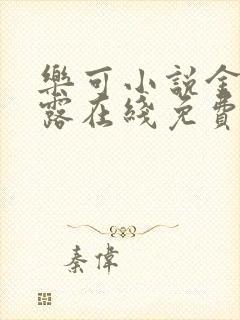 樂可小說金
露在綫免費
秦偉